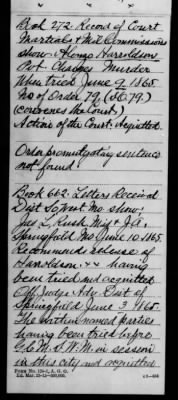 Book 272. Record of Court
Martials & Mil Commissions
show:- Alonzo Harroldson
Pvt. Charges Murder
When tried June 9 1865.
No of Order 79, (SO. 79.)
(convenes the Court.)
Action of the Court: Acquitted.
Order promulgating sentence
not found!
Book 662: Letters Received
Dist So West Mo show;
Jas L. Rush
Springfield Mo June 10 1865.
Recommend release of
Haroldson. xx having
been tried and acquitted.
Off. Judge Adv. Dist of
Springfield June 1865.
The within named parties
having been tried before
G. C. M. in session
in this city and acquitted